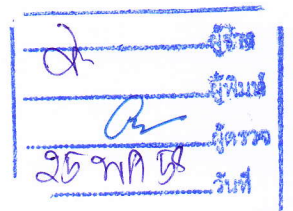 ผู้ร่าง
ผู้พิมพ์
ผู้ตรวจ
25 พค 58 วันที่